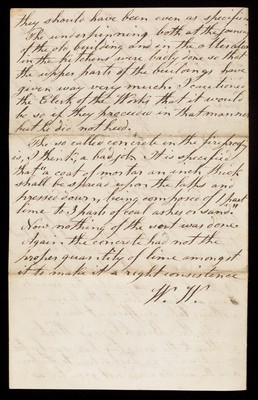 they should have been even as specified
The underpinning both at the front
of the old building and in the alterations
in the kitchens were badly done so that
the upper parts of the buildings have
given way very much. I cautioned
the Clerk of the Works that it would
be so if they proceeded in that manner
but he did not heed.
The so called concrete in the fireproof
is, I think, a bad job. It is specified
that "a coat of mortar an inch thick
shall be spread upon the laths and
pressed down, being composed of 1 part
lime to 3 parts of coal ashes or sand."
Now nothing of the sort was done
Again the concrete had not the
proper quantity of lime amongst
it to make it a right consistence
W. W.